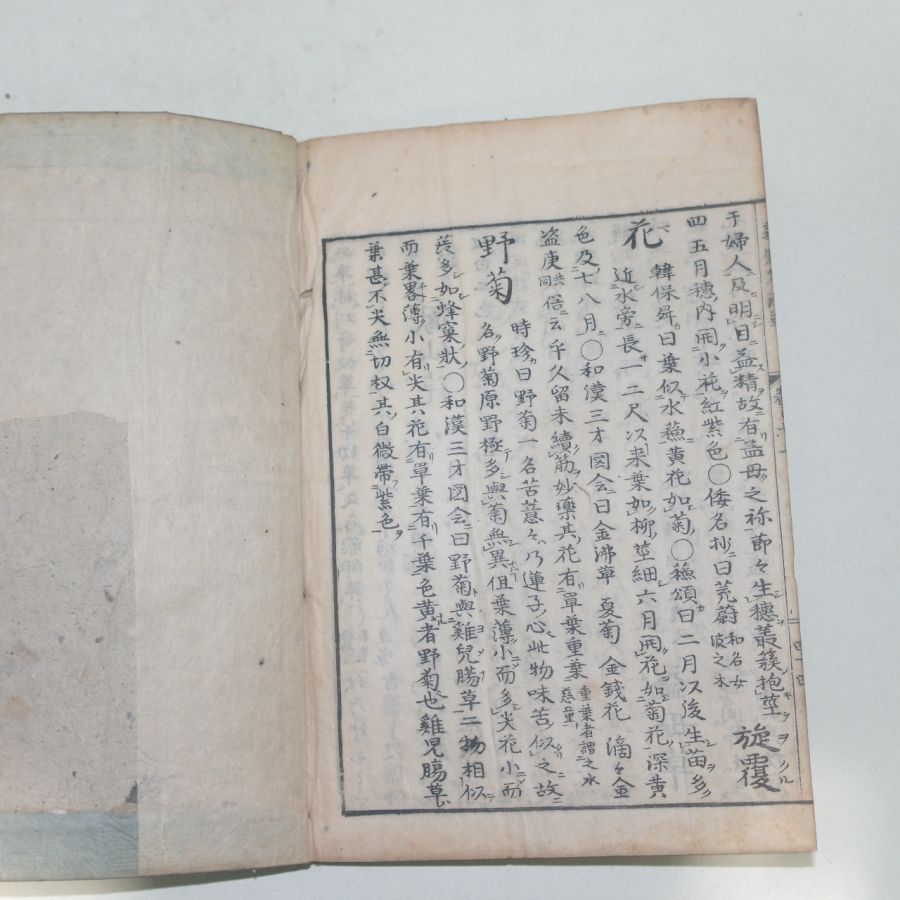 于婦人及明目益精故有益母之称節々生穗叢簇抱莖
四五月穗内開小花紅紫色〇倭名抄曰茺蔚 和名女波之木
旋覆
花 韓保昇曰葉似水蘓黄花如菊〇蘓頌曰二月以後生苗多
近水旁長一二尺以来葉如柳莖細六月開花如菊花深黄
色及七八月〇和漢三才図会曰金沸草 夏菊 金錢花 滴々金
盗庚 共同 俗云乎久留末續筋妙藥其花有單葉重葉 重葉者謂之水
野菊 時珍曰野菊一名苦薏々乃蓮子心此物味苦似之故
名野菊原野極多與菊無異但葉薄小而多尖花小而
蕊多如蜂窠狀〇和漢三才図会曰野菊與雞兒腸草二物相似
而葉畧薄小有尖其花有單葉有千葉色黄者野菊也雞児腸草
葉甚不尖無切杈其白微帶紫色